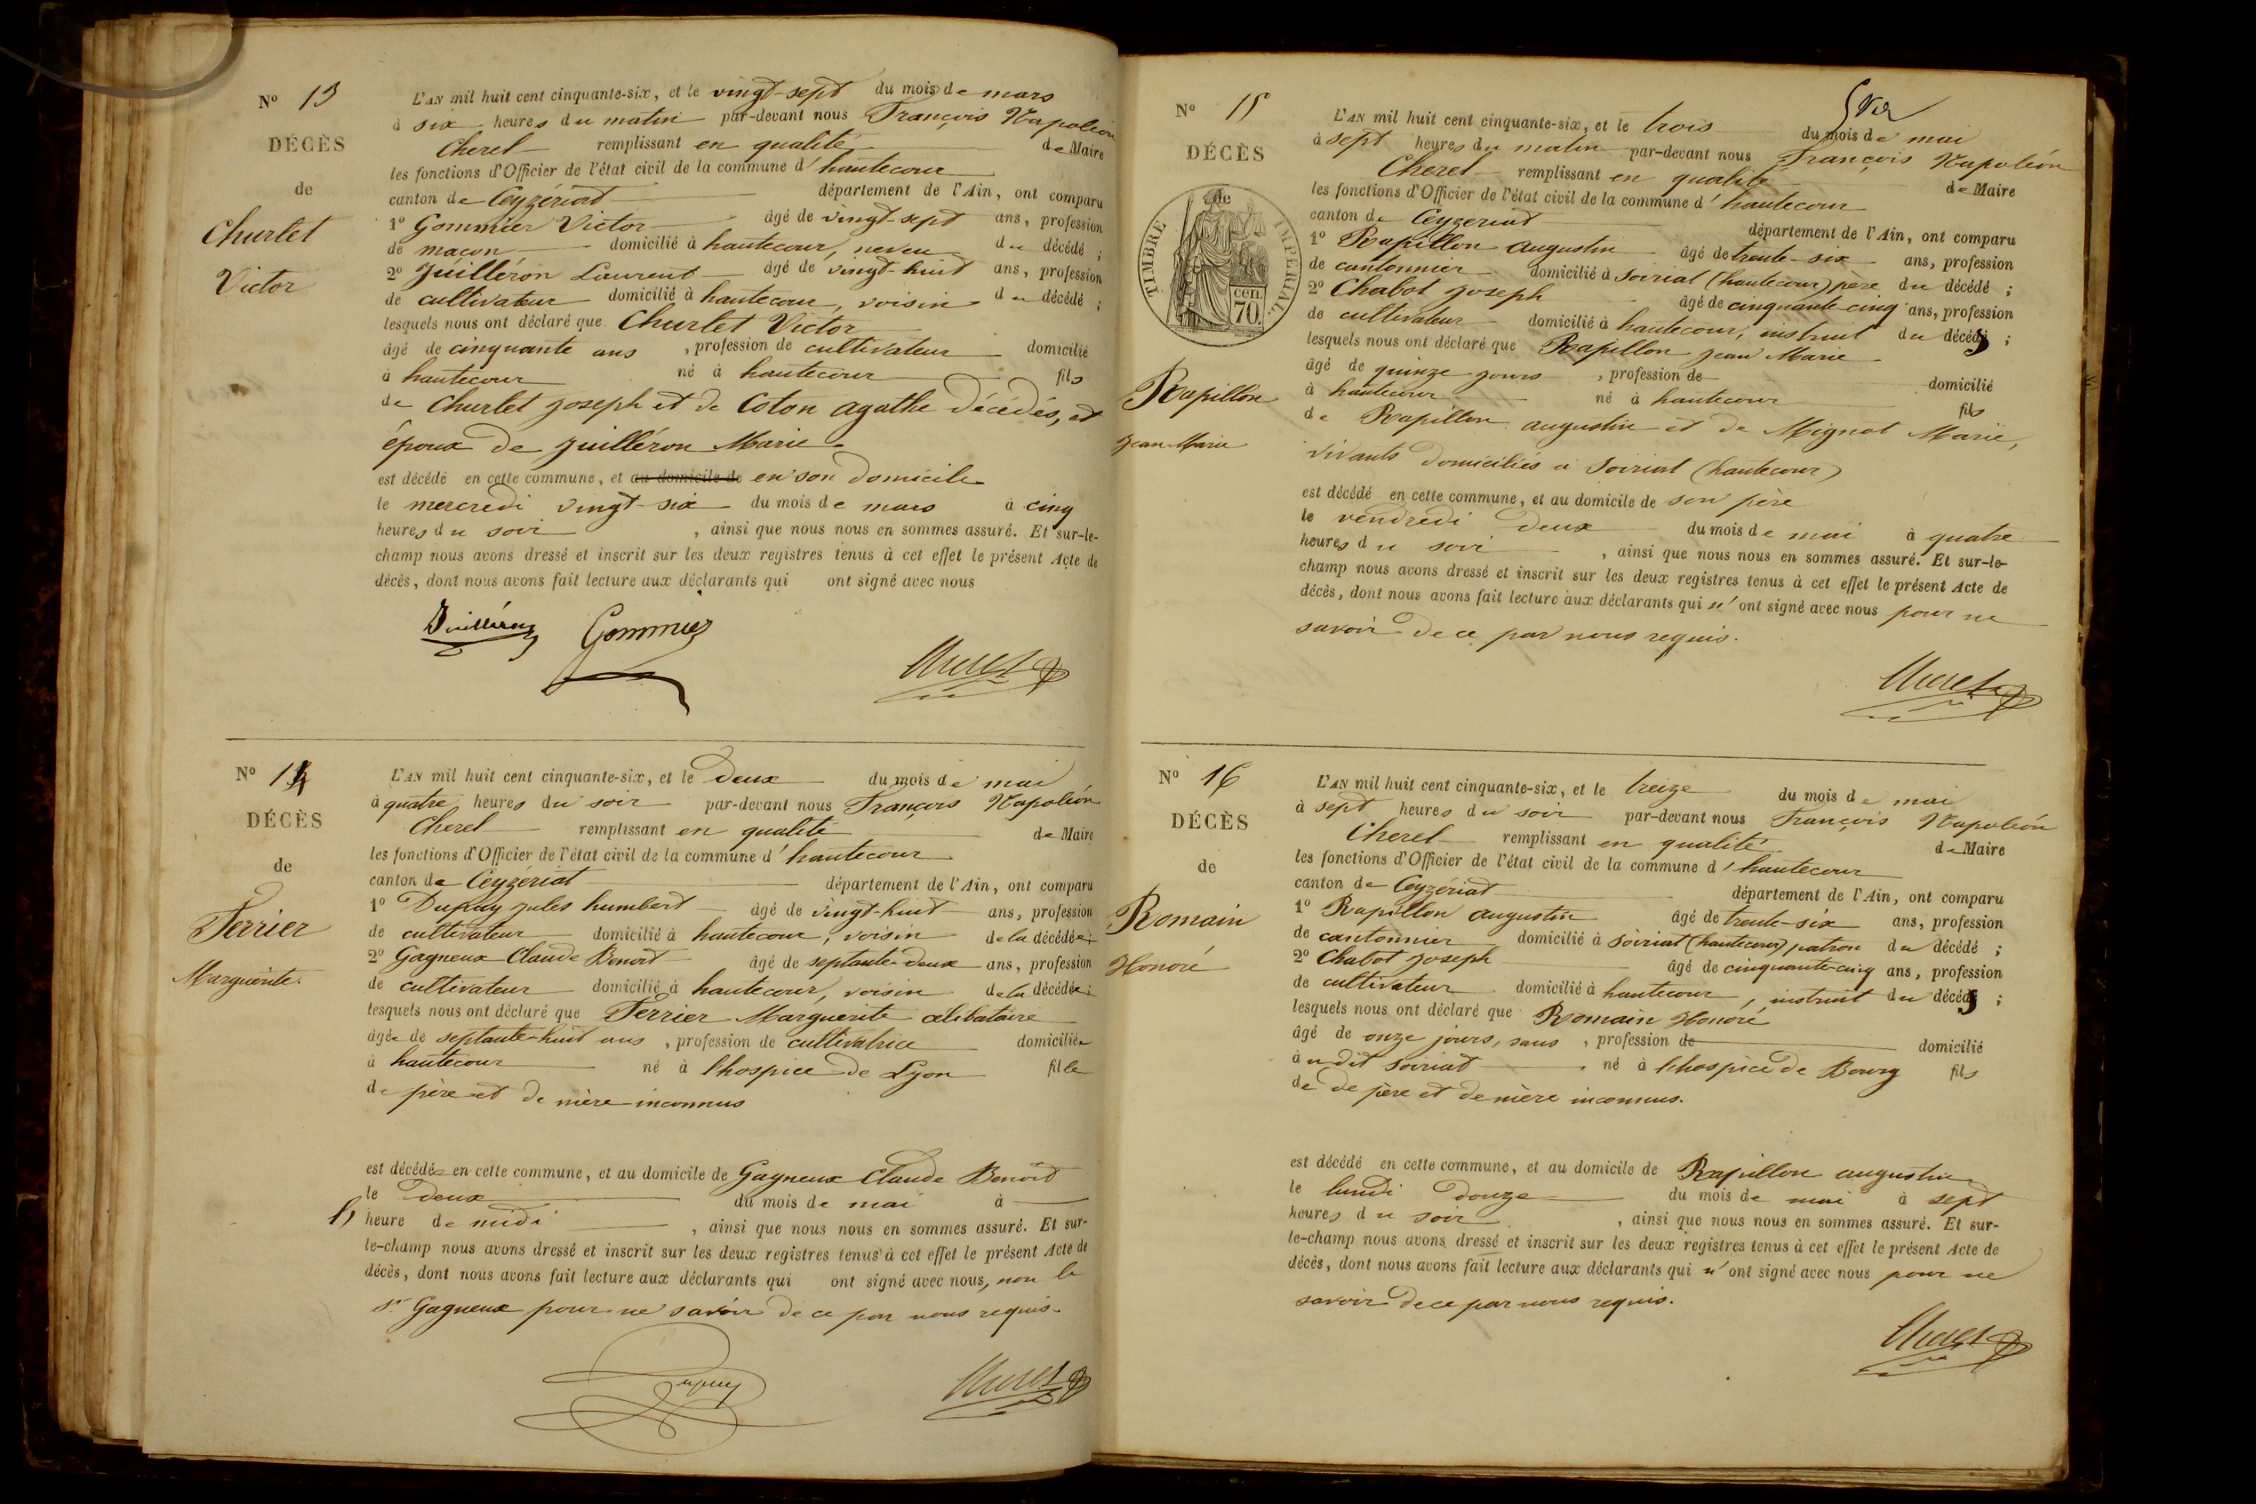 N° 13
DÉCÈS
de
Churlet
Victor
L'AN mil huit cent cinquante-six, et le vingt-sept du mois de mars
à six heures du matin par-devant nous François Napoléon
Cherel remplissant en qualité de Maire
les fonctions d'Officier de l'état civil de la commune d'hautecour
canton de Ceyzériat département de l'Ain, ont comparu
1° Gommier Victor âgé de vingt-sept ans, profession
de maçon domicilié à hautecour, neveu du décédé ;
2° Juilléron Laurent âgé de vingt-huit ans, profession
de cultivateur domicilié à hautecour, voisin du décédé ;
lesquels nous ont déclaré que Churlet Victor
âgé de cinquante ans , profession de cultivateur domicilié
à hautecour né à hautecour fils
de Churlet Joseph et de Coton agathe décédés, et
époux de Juilléron Marie
est décédé en cette commune, et au domicile de en son domicile
le mercredi vingt-six du mois de mars à cinq
heures du soir , ainsi que nous nous en sommes assuré. Et sur-le-
champ nous avons dressé et inscrit sur les deux registres tenus à cet effet le présent Acte de
décès, dont nous avons fait lecture aux déclarants qui ont signé avec nous
Juilléron Gommier
Cherel
N° 14
DÉCÈS
de
Ferrier
Marguerite.
L'AN mil huit cent cinquante-six, et le deux du mois de mai
à quatre heures du soir par-devant nous François Napoléon
Cherel remplissant en qualité de Maire
les fonctions d'Officier de l'état civil de la commune d'hautecour
canton de Ceyzériat département de l'Ain, ont comparu
1° Dupuy jules humbert âgé de vingt-huit ans, profession
de cultivateur domicilié à hautecour, voisin de la décédée ;
2° Gagneux Claude Benoit âgé de septante-deux ans, profession
de cultivateur domicilié à hautecour, voisin de la décédée ;
lesquels nous ont déclaré que Ferrier Marguerite célibataire
âgée de septante-huit ans , profession de cultivatrice domiciliée
à hautecour né à l'hospice de Lyon fille
de père et de mère inconnus
est décédée en cette commune, et au domicile de Gagneux Claude Benoit
le deux du mois de mai à
heure de midi , ainsi que nous nous en sommes assuré. Et sur-
le-champ nous avons dressé et inscrit sur les deux registres tenus à cet effet le présent Acte de
décès, dont nous avons fait lecture aux déclarants qui ont signé avec nous, non le
sr Gagneux pour ne savoir de ce par nous requis.
Dupuy
Cherel
N° 15
DÉCÈS
de
TIMBRE IMPÉRIAL
70 cen.
Rapillon
Jean Marie
L'AN mil huit cent cinquante-six, et le trois du mois de mai
à sept heures du matin par-devant nous François Napoléon
Cherel remplissant en qualité de Maire
les fonctions d'Officier de l'état civil de la commune d'hautecour
canton de Ceyzeriat département de l'Ain, ont comparu
1° Rapillon augustin âgé de trente-six ans, profession
de cantonnier domicilié à Soiriat (hautecour) père du décédé ;
2° Chabot Joseph âgé de cinquante-cinq ans, profession
de cultivateur domicilié à hautecour, instruit du décés ;
lesquels nous ont déclaré que Rapillon Jean Marie
âgé de quinze jours , profession de domicilié
à hautecour né à hautecour fils
de Rapillon augustin et de Mignot Marie,
vivants domiciliés à Soiriat (hautecour)
est décédé en cette commune, et au domicile de son père
le vendredi deux du mois de mai à quatre
heures du soir , ainsi que nous nous en sommes assuré. Et sur-le-
champ nous avons dressé et inscrit sur les deux registres tenus à cet effet le présent Acte de
décès, dont nous avons fait lecture aux déclarants qui n'ont signé avec nous pour ne
savoir de ce par nous requis.
Cherel
N° 16
DÉCÈS
de
Romain
Honoré
L'AN mil huit cent cinquante-six, et le treize du mois de mai
à sept heures du soir par-devant nous François Napoléon
Cherel remplissant en qualité de Maire
les fonctions d'Officier de l'état civil de la commune d'hautecour
canton de Ceyzériat département de l'Ain, ont comparu
1° Rapillon augustin âgé de trente-six ans, profession
de cantonnier domicilié à Soiriat (hautecour) patron du décédé ;
2° Chabot Joseph âgé de cinquante-cinq ans, profession
de cultivateur domicilié à hautecour, instruit du décés ;
lesquels nous ont déclaré que Romain Honoré
âgé de onze jours, sans , profession de domicilié
au dit Soiriat né à l'hospice de Bourg fils
de de père et de mère inconnus.
est décédé en cette commune, et au domicile de Rapillon augustin
le lundi douze du mois de mai à sept
heures du soir , ainsi que nous nous en sommes assuré. Et sur-
le-champ nous avons dressé et inscrit sur les deux registres tenus à cet effet le présent Acte de
décès, dont nous avons fait lecture aux déclarants qui n'ont signé avec nous pour ne
savoir de ce par nous requis.
Cherel